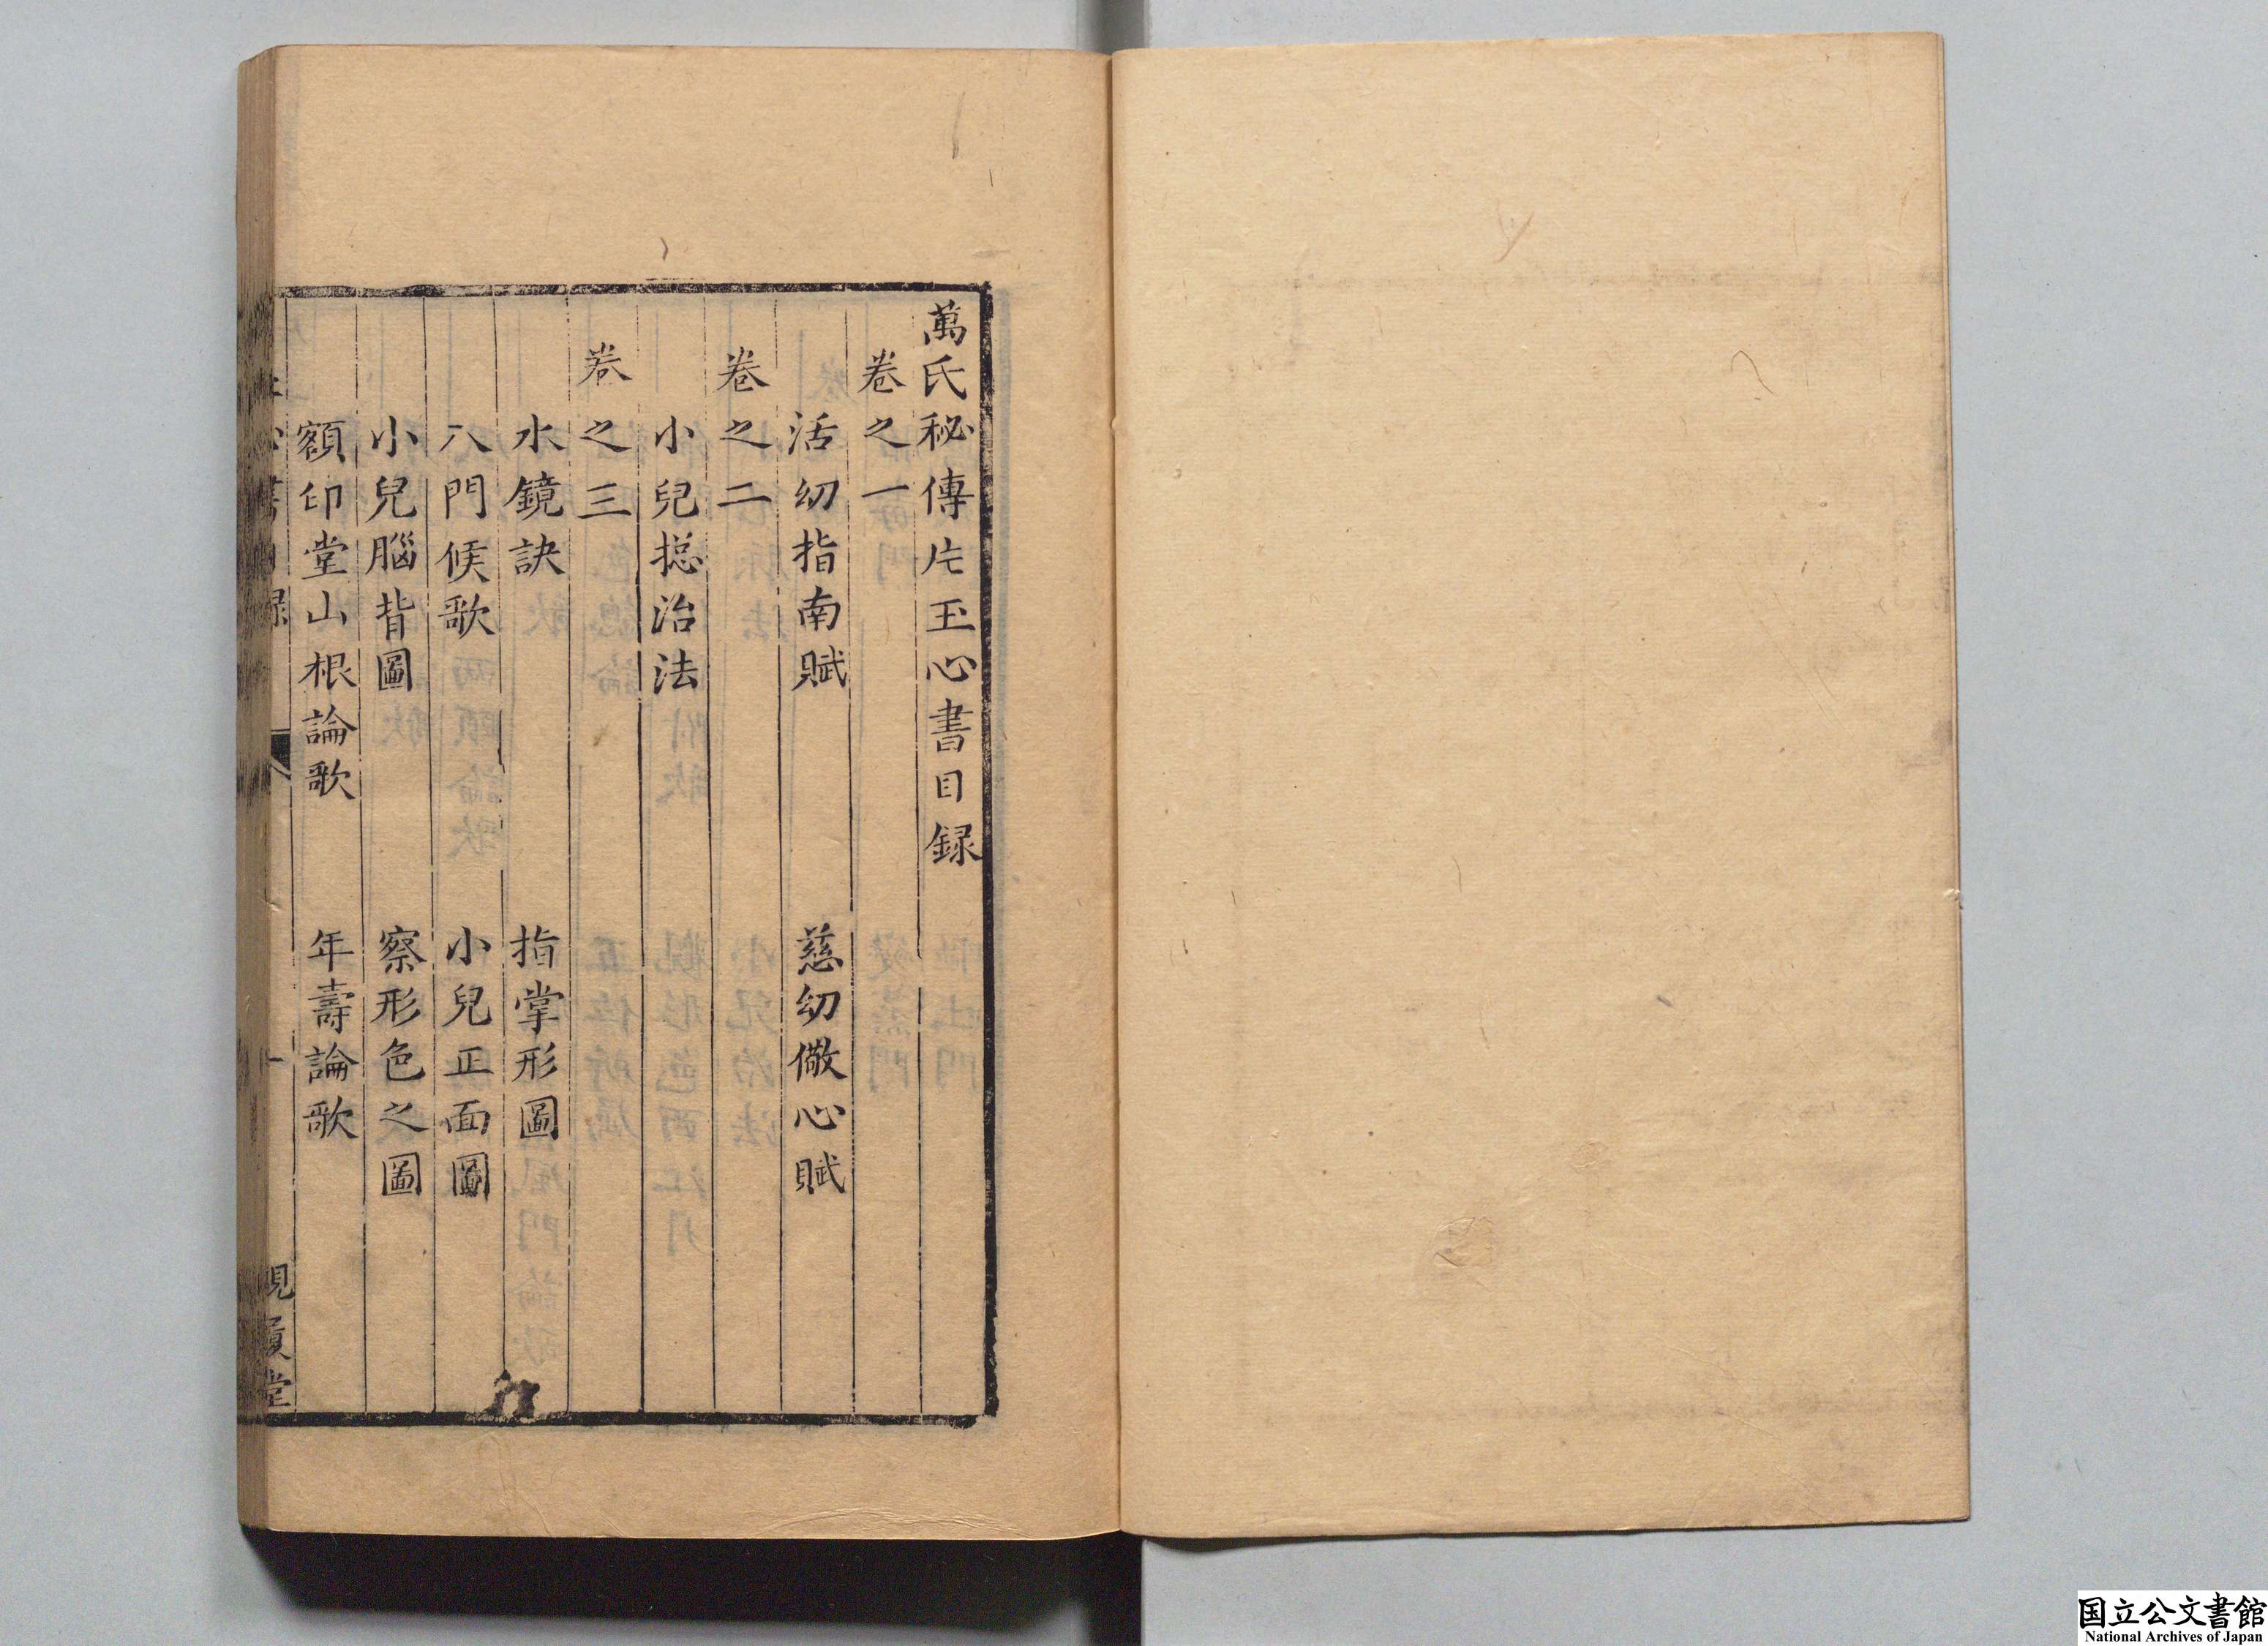 萬氏秘傳片玉心書目録
卷之一
活幼指南賦　慈幼儆心賦
卷之二
小兒捴治法
卷之三
水鏡訣　指掌形圖
八門候歌　小兒正面圖
小兒腦背圖　察形色之圖
額印堂山根論歌　年壽論歌
堂
国立公文書館
National Archives of Japan